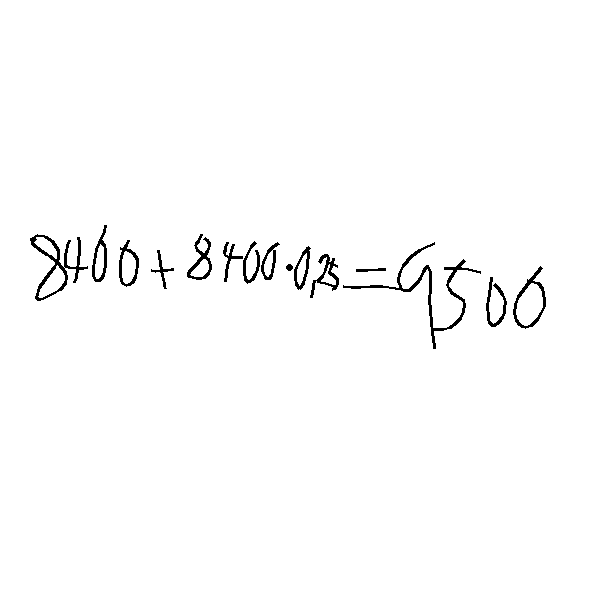 8400+8400·0,25=9500